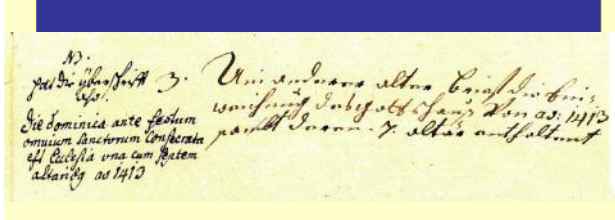 N3.
hat die überschrifft
also.
Die Dominica ante festum
omnium Sanctorum Consecrata
est Ecclesia una cum septem
altaribq ao 1413
3. Ein anderer alter brieff die Ein-
weichung des gotts Haus von ao: 1413
sambt deren 7. altär enthaltent